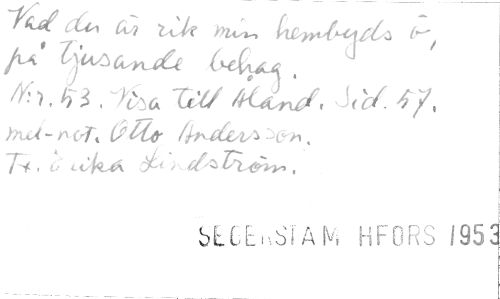 Vad du är rik min hembyds ö,
på tjusande behag.
N:r. 53. Visa till Åland. Sid. 57.
mel-not. Otto Andersson.
Tx. Erika Lindström.
SEGERSTAM HFORS 1953